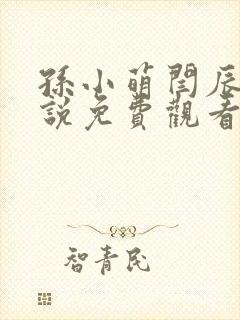 孫小萌閆辰
說免費觀看
智青民